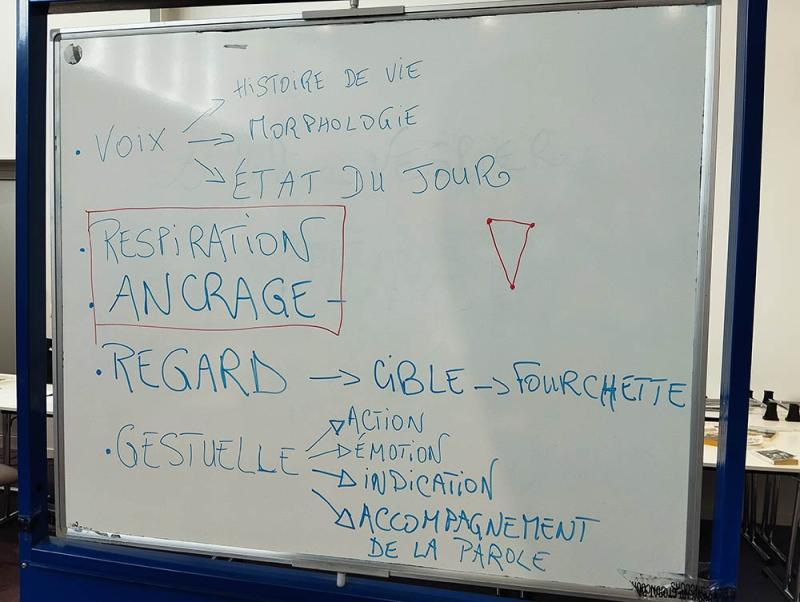 • VOIX → HISTOIRE DE VIE
→ MORPHOLOGIE
→ ÉTAT DU JOUR
• RESPIRATION
• ANCRAGE -
• REGARD → CIBLE → FOURCHETTE
• GESTUELLE → ACTION
→ ÉMOTION
→ INDICATION
→ ACCOMPAGNEMENT
DE LA PAROLE